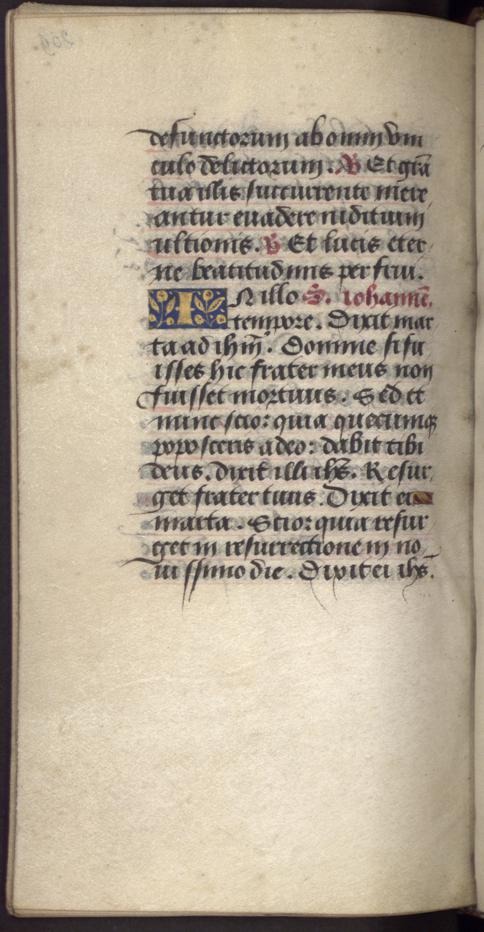 defunctorum ab omni vin
culo delictorum. ℣ Et gr̄a
tua illis succurrente mere
antur euadere iuditium
ultionis. ℣ Et lucis eter
ne beatitudinis perfrui.
IN illo S. iohannē.
tempore. Dixit mar
ta ad ihm̄. Domine si fu
isses hic frater meus non
fuisset mortuus. Sed et
nunc scio: quia quecumq̨
poposceris a deo: dabit tibi
deus. dixit illi ihs̄. Resur
get frater tuus. Dixit ei
marta. Scio: quia resur
get in resurrectione in no
uissimo die. Dixit ei ihs̄.